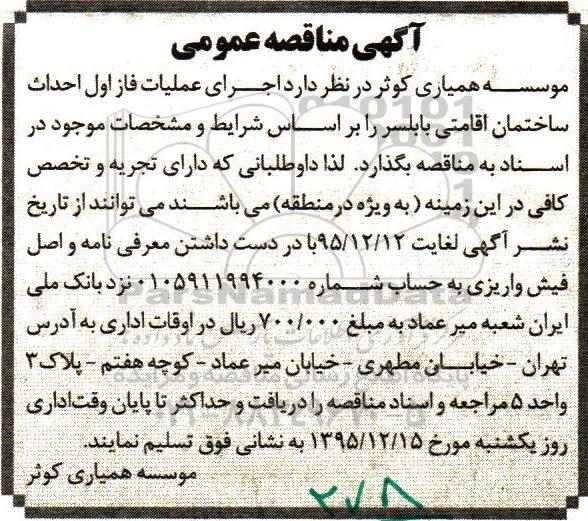 آگهی مناقصه عمومی
موسسه همیاری کوثر در نظر دارد اجرای عملیات فاز اول احداث
ساختمان اقامتی بابلسر را بر اساس شرایط و مشخصات موجود در
اسناد به مناقصه بگذارد. لذا داوطلبانی که دارای تجربه و تخصص
کافی در این زمینه (به ویژه در منطقه) می باشند می توانند از تاریخ
نشر آگهی لغایت ۹۵/۱۲/۱۲ با در دست داشتن معرفی نامه و اصل
فیش واریزی به حساب شماره ۰۱۰۵۹۱۱۹۹۴۰۰۰ نزد بانک ملی
ایران شعبه میر عماد به مبلغ ۷۰۰/۰۰۰ ریال در اوقات اداری به آدرس
تهران - خیابان مطهری - خیابان میر عماد - کوچه هفتم - پلاک ۳
واحد ۵ مراجعه و اسناد مناقصه را دریافت و حداکثر تا پایان وقت اداری
روز یکشنبه مورخ ۱۳۹۵/۱۲/۱۵ به نشانی فوق تسلیم نمایند.
موسسه همیاری کوثر
ParsNamadData
۲۷۸